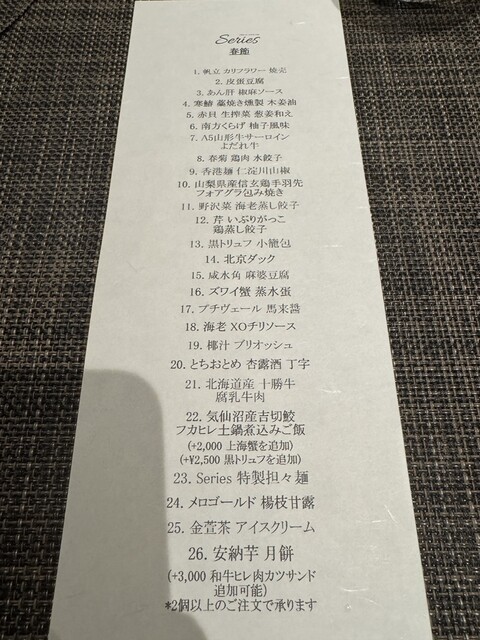 Series
春節
1. 帆立 カリフラワー 焼売
2. 皮蛋豆腐
3. あん肝 椒麻ソース
4. 寒鰆 藁焼き燻製 木姜油
5. 赤貝 生搾菜 葱姜和え
6. 南方くらげ 柚子風味
7. A5山形牛サーロイン
よだれ牛
8. 春菊 鶏肉 水餃子
9. 香港麺 仁淀川山椒
10. 山梨県産信玄鶏手羽先
フォアグラ包み焼き
11. 野沢菜 海老蒸し餃子
12. 芹 いぶりがっこ
鶏蒸し餃子
13. 黒トリュフ 小籠包
14. 北京ダック
15. 咸水角 麻婆豆腐
16. ズワイ蟹 蒸水蛋
17. プチヴェール 馬来醤
18. 海老 XOチリソース
19. 椰汁 ブリオッシュ
20. とちおとめ 杏露酒 丁字
21. 北海道産 十勝牛
腐乳牛肉
22. 気仙沼産吉切鮫
フカヒレ土鍋煮込みご飯
(+2,000 上海蟹を追加)
(+¥2,500 黒トリュフを追加)
23. Series 特製担々麺
24. メロゴールド 楊枝甘露
25. 金萱茶 アイスクリーム
26. 安納芋 月餅
(+3,000 和牛ヒレ肉カツサンド
追加可能)
*2個以上のご注文で承ります